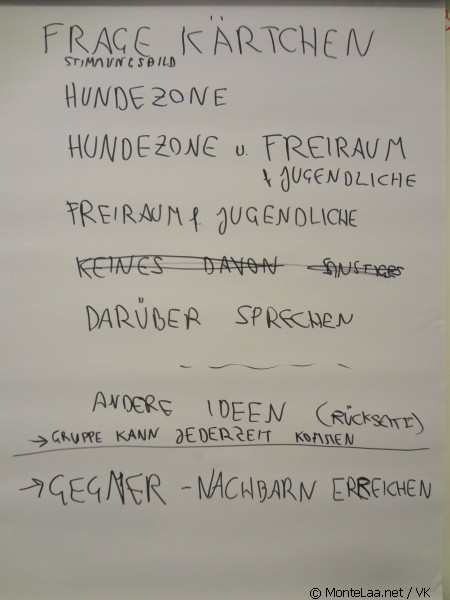 FRAGE KÄRTCHEN
STIMMUNGSBILD
HUNDEZONE
HUNDEZONE u. FREIRAUM
f JUGENDLICHE
FREIRAUM f JUGENDLICHE
KEINES DAVON SONSTIGES
DARÜBER SPRECHEN
ANDERE IDEEN (RÜCKSEITE)
→ GRUPPE KANN JEDERZEIT KOMMEN
→ GEGNER - NACHBARN ERREICHEN
© MonteLaa.net / VK